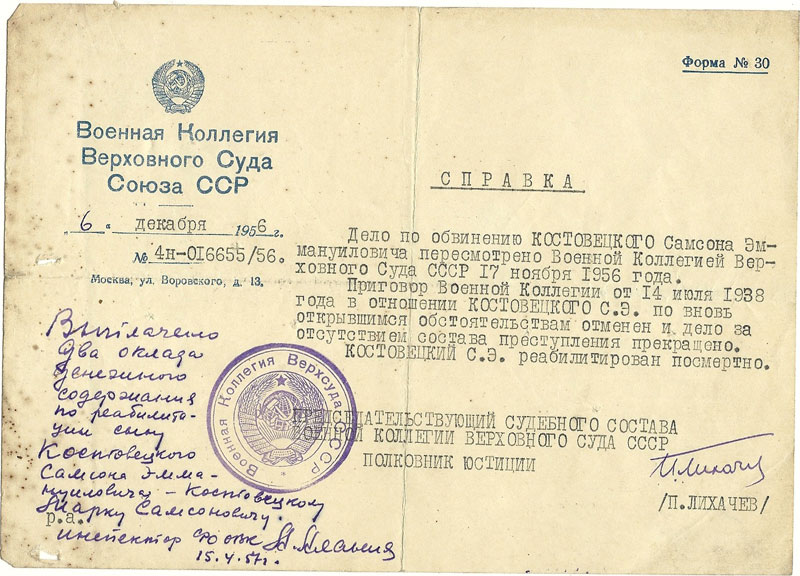 Форма № 30
Военная Коллегия
Верховного Суда
Союза ССР
„6" декабря 1956 г.
№ 4н-016655/56.
Москва, ул. Воровского, д. 13.
СПРАВКА
Дело по обвинению КОСТОВЕЦКОГО Самсона Эм-
мануиловича пересмотрено Военной Коллегией Вер-
ховного Суда СССР 17 ноября 1956 года.
Приговор Военной Коллегии от 14 июля 1938
года в отношении КОСТОВЕЦКОГО С.Э. по вновь
открывшимся обстоятельствам отменен и дело за
отсутствием состава преступления прекращено.
КОСТОВЕЦКИЙ С.Э. реабилитирован посмертно.
ПРЕДСЕДАТЕЛЬСТВУЮЩИЙ СУДЕБНОГО СОСТАВА
ВОЕННОЙ КОЛЛЕГИИ ВЕРХОВНОГО СУДА СССР
ПОЛКОВНИК ЮСТИЦИИ
П.Лихачев
/П.ЛИХАЧЕВ/
Военная Коллегия Верхсуда СССР
Выплачено
два оклада
денежного
содержания
по реабилита-
ции сыну
Костовецкого
Самсона Эмма-
нуиловича - Костовецкому
Марку Самсоновичу.
р.а.
инспектор
15.4.57г.